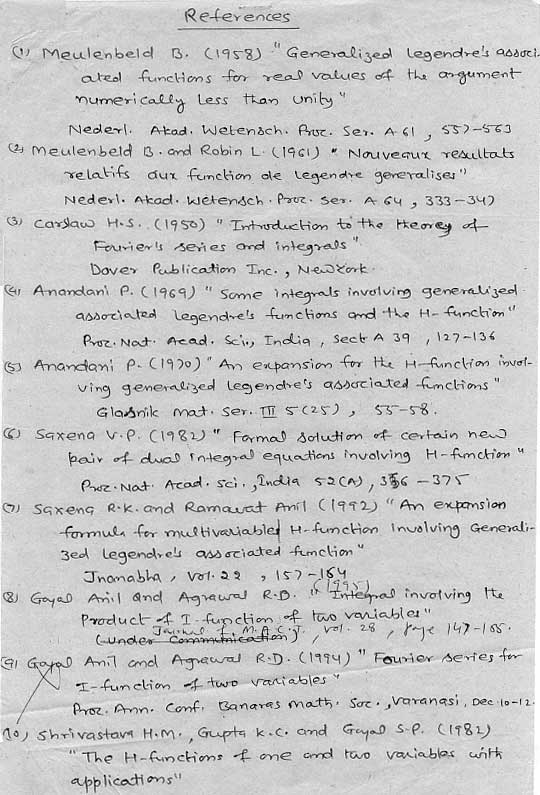 References
(1) Meulenbeld B. (1958) "Generalized legendre's associ-
ated functions for real values of the argument
numerically less than unity"
Nederl. Akad. Wetensch. Proc. Ser. A 61, 557-563
(2) Meulenbeld B. and Robin L. (1961) "Nouveaux resultats
relatifs aux function de legendre generalises"
Nederl. Akad. Wetensch. Proc. Ser. A 64, 333-347
(3) Carslaw H.S. (1950) "Introduction to the theorey of
Fourier's series and integrals"
Dover Publication Inc., New York.
(4) Anandani P. (1969) "Some integrals involving generalized
associated legendre's functions and the H-function"
Proc. Nat. Acad. Sci., India, Sect A 39, 127-136
(5) Anandani P. (1970) "An expansion for the H-function invol-
ving generalized legendre's associated functions"
Glasnik mat. Ser. III 5(25), 55-58.
(6) Saxena V.P. (1982) "Formal solution of certain new
pair of dual integral equations involving H-function"
Proz. Nat. Acad. Sci., India 52(A), 366-375
(7) Saxena R.K. and Ramawat Anil (1992) "An expansion
formula for multivariable H-function Involving Generali-
zed legendre's associated function"
Jnanabha, Vol. 22, 157-164
(8) Goyal Anil and Agrawal R.D. (1995) "Integral involving the
Product of I-function of two variables"
(under Communication) Journal of M.A.C.T., Vol. 28, page 147-155.
(9) Goyal Anil and Agrawal R.D. (1994) "Fourier series for
I-function of two variables"
Proz. Ann. Conf. Banaras math. Soc., Varanasi, Dec 10-12.
(10) Shrivastava H.M., Gupta K.C. and Goyal S.P. (1982)
"The H-functions of one and two variables with
applications"